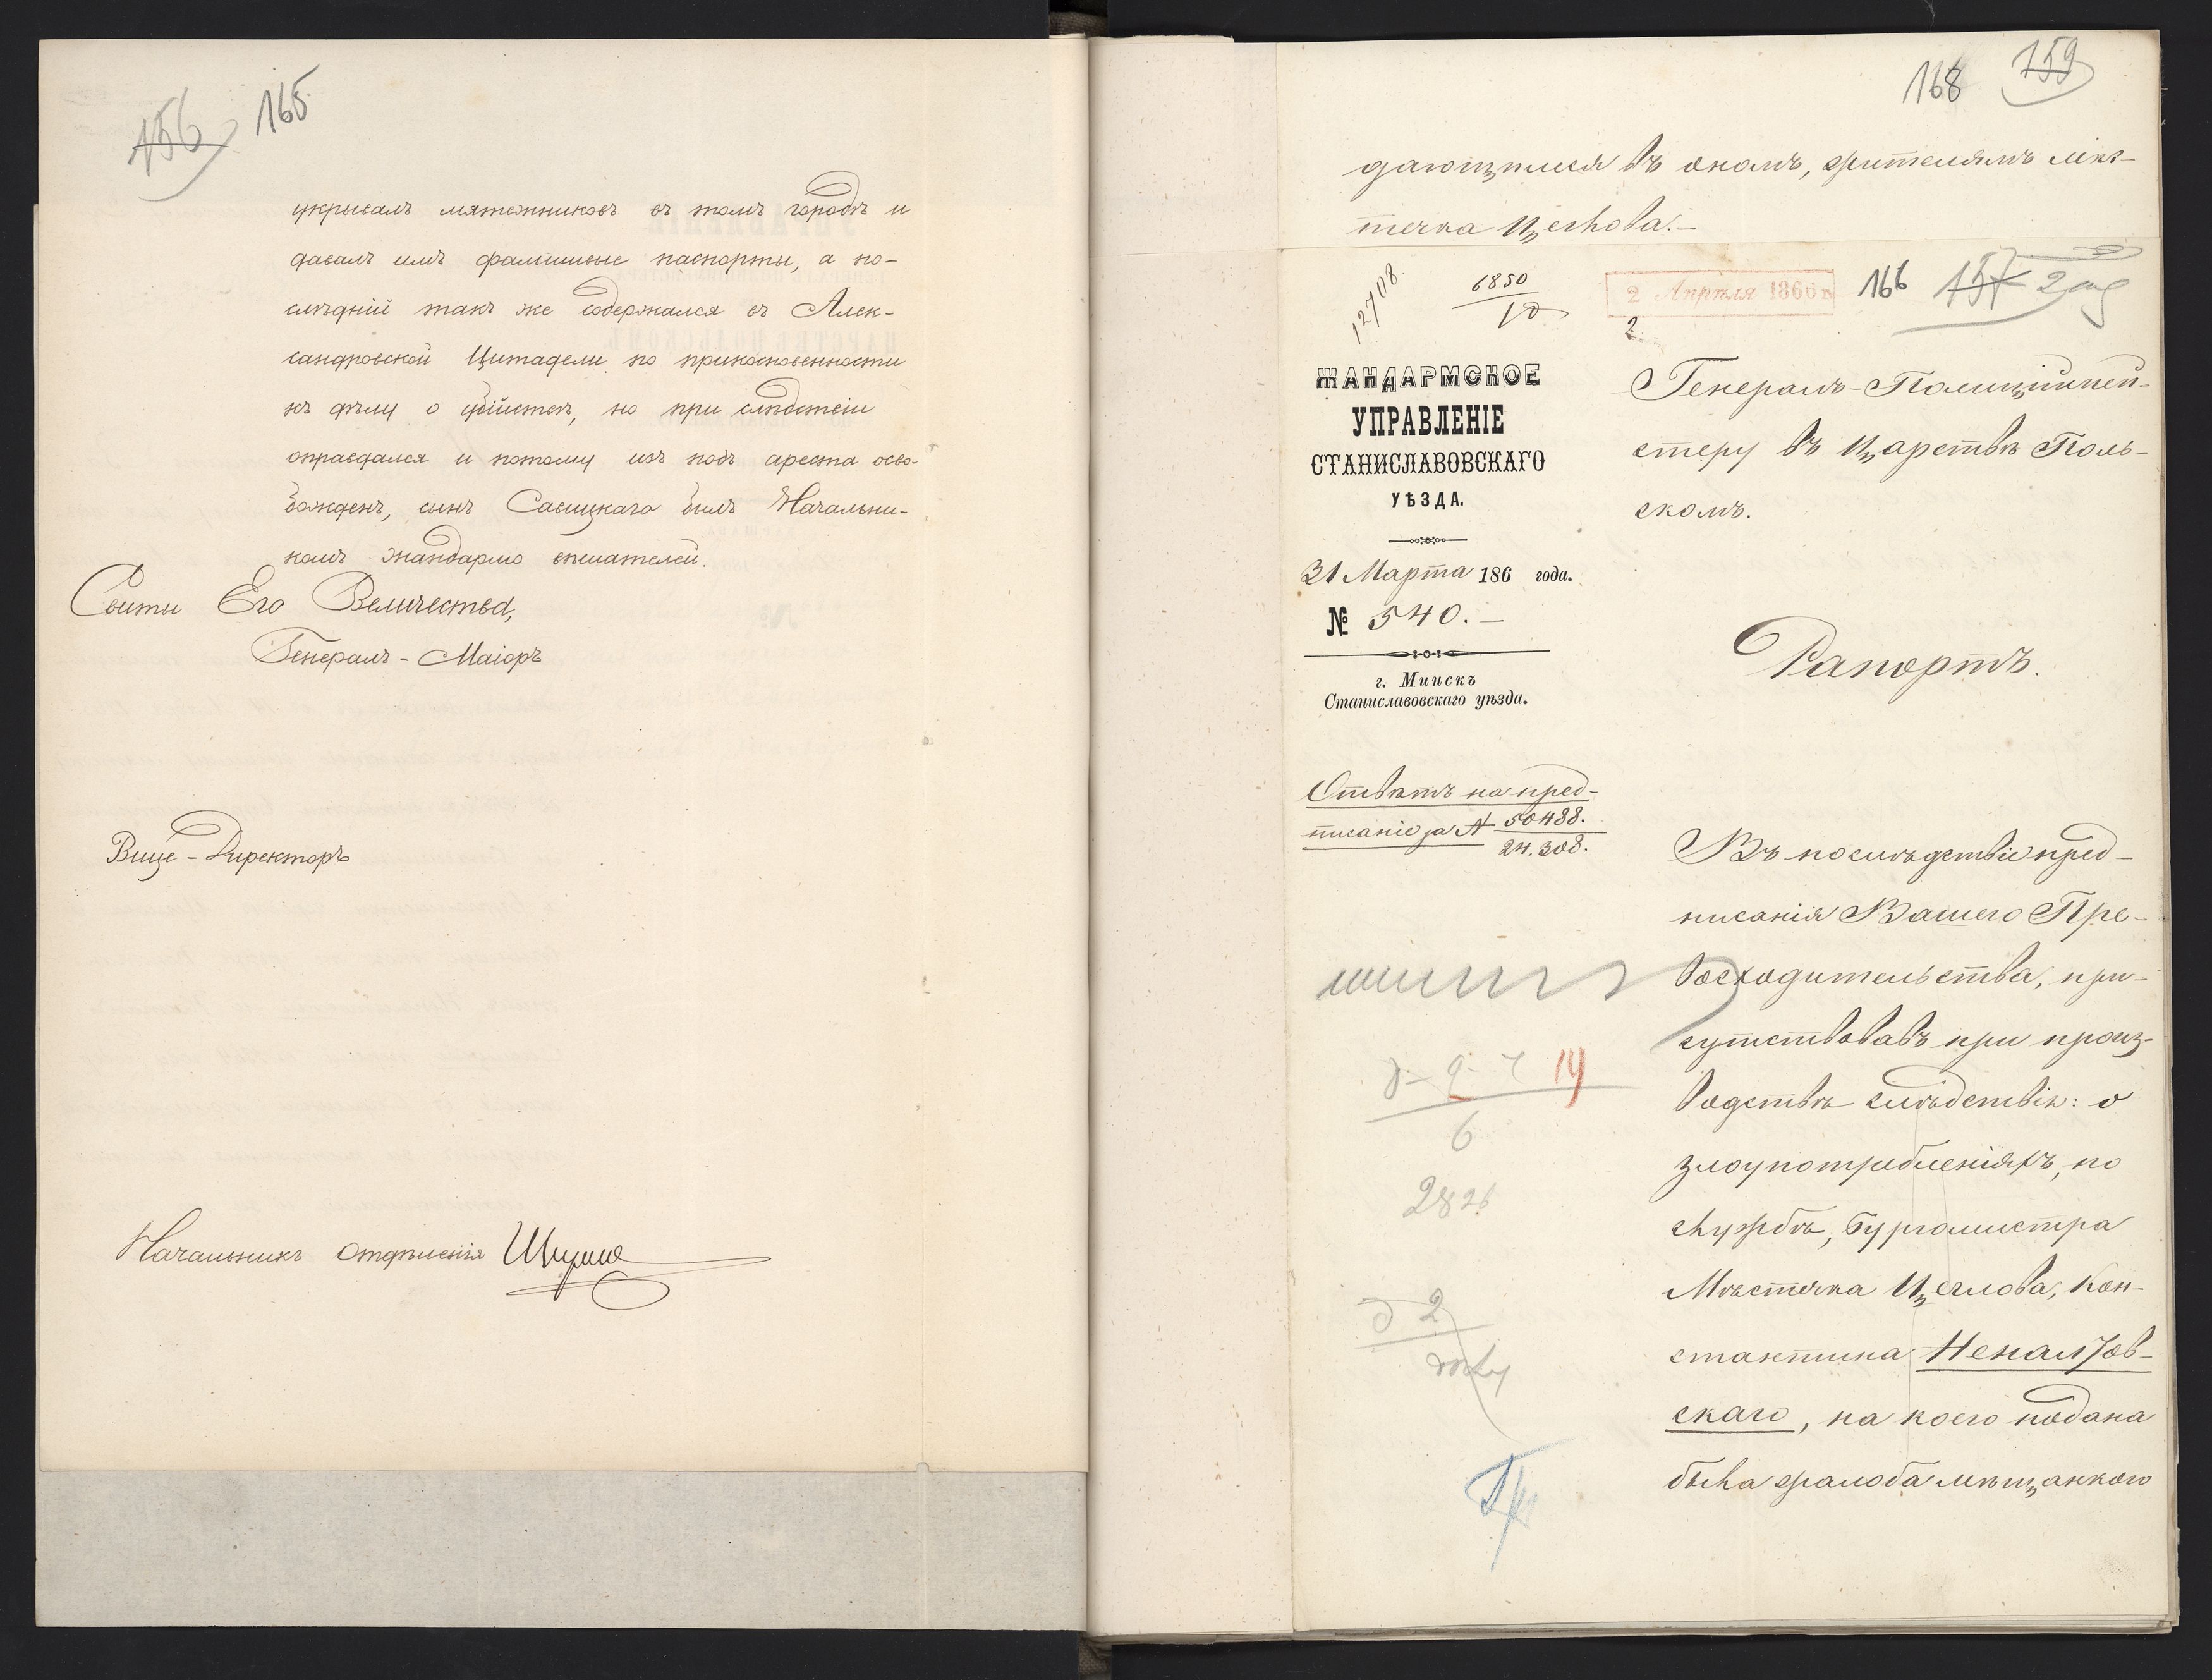 156 165
укрывалъ мятежниковъ въ томъ городѣ и
давалъ имъ фальшивые паспорты, а по-
слѣдній такъ же содержался въ Алек-
сандровской Цитадели по прикосновенности
къ дѣлу о убійствѣ, но при слѣдствіи
оправдался и потому изъ подъ ареста осво-
божденъ, сынъ Савицкаго былъ Начальни-
комъ жандармо вѣшателей.
Свиты Его Величества,
Генералъ-Маіоръ
Вице-Директоръ
Начальникъ Отдѣленія
168 159
дающимся въ ономъ, жителямъ мѣс-
течка Цеглова.-
12708
6850
10
2 Апрѣля 1866 г.
166 157
2
ЖАНДАРМСКОЕ
УПРАВЛЕНІЕ
СТАНИСЛАВОВСКАГО
УѢЗДА.
31 Марта 186 года.
№ 540.-
г. Минскъ
Станиславовскаго уѣзда.
Генералъ-Полиціймей-
стеру въ Царствѣ Поль-
скомъ.
Рапортъ.
Отвѣтъ на пред-
писаніе за № 50488.
24.308.
Въ послѣдствіе пред-
писанія Вашего Пре-
восходительства, при-
сутствовавъ при произ-
водствѣ слѣдствія: о
злоупотребленіяхъ, по
службѣ, Бургомистра
Мѣстечка Цеглова, Кон-
стантина
скаго, на коего подана
была жалоба мѣщанкою
14
6
2826
2